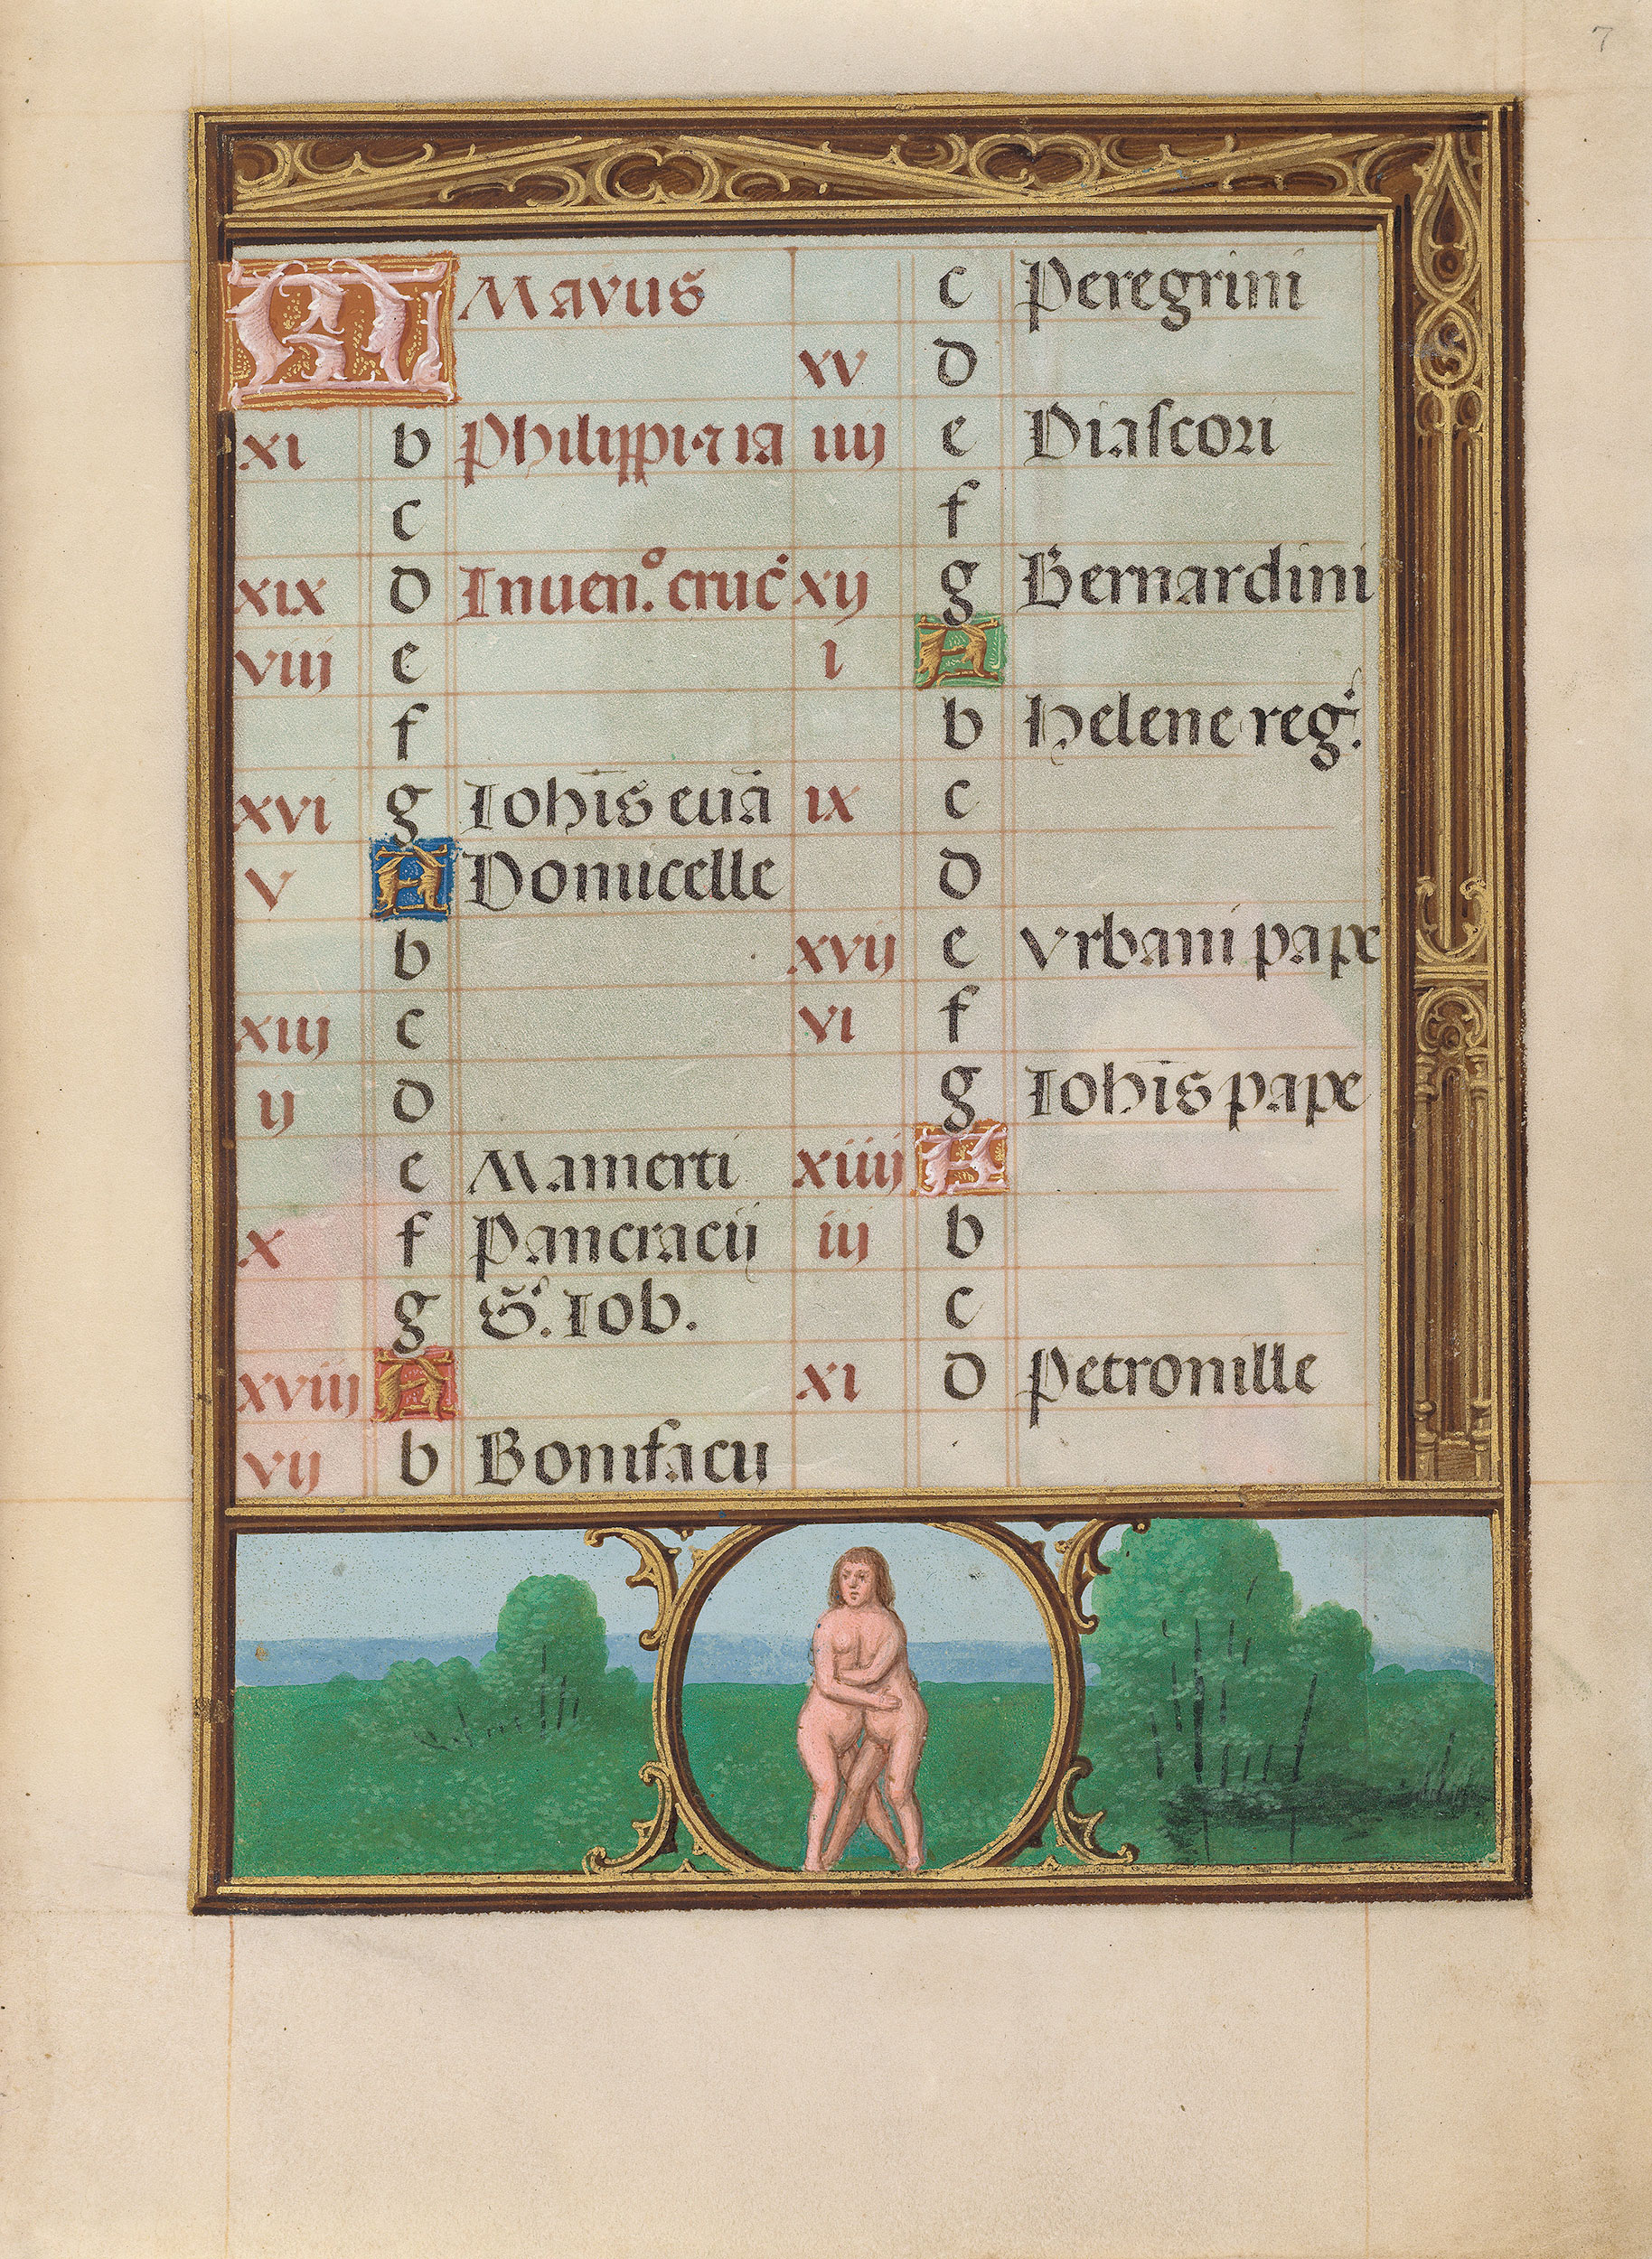 7
M Mayus
xi b Philippi ⁊ ia
c
xix d Inuen.º cruc̃
viii e
f
xvi g Iohi̅s eua̅
v A Domicelle
b
xiij c
ij d
e Mamerti
x f Pancracij
g S. Iob.
xviij A
vij b Bonifacij
c Peregrini
xv d
iiij e Diascori
f
xij g Bernardini
i A
b Helene reg.
ix c
d
xvij e Vrbani pape
vi f
g Iohi̅s pape
xiiij A
iij b
c
xi d Petronille